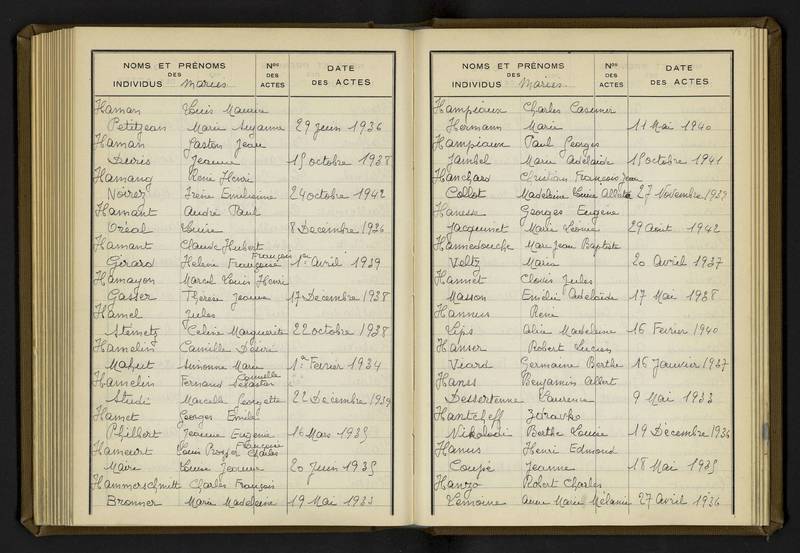 NOMS ET PRÉNOMS DES INDIVIDUS Mariés Nos DES ACTES DATE DES ACTES
Haman Louis Maurice
Petitjean Marie Suzanne 29 Juin 1936
Haman Gaston Jean
Jeanne 15 octobre 1938
Hamang René Henri
Noirez Irène Emilienne 24 octobre 1942
Hamant André Paul
Oréal Louise 8 Décembre 1936
Hamant Claude Hubert François
Girard Helène Françoise 1er Avril 1939
Hamayon Marcel Louis Henri
Gasser Thérèse Jeanne 17 Décembre 1938
Hamel Jules
Stemetz Celine Marguerite 22 octobre 1938
Hamelin Camille Désiré
Mahut Suzanne Marie 1er Fevrier 1934
Hamelin Fernand Sébastien Camille
Studi Marcelle Georgette 22 Décembre 1939
Hamet Georges Emile
Philbert Jeanne Eugenie 16 Mars 1935
Hameurt Louis Prosper Charles François
Maire Louise Jeanne 20 Juin 1935
Hammerschmitt Charles François
Bronner Marie Madeleine 19 Mai 1933
NOMS ET PRÉNOMS DES INDIVIDUS Mariés Nos DES ACTES DATE DES ACTES
Hampiaux Charles Casimir
Hermann Marie 11 Mai 1940
Hampiaux Paul Georges
Jambel Marie Adélaïde 15 octobre 1941
Hanchard Christian François Jean
Collot Madeleine Louise 27 Novembre 1939
Hanesse Georges Eugène
Jacqueinet Marie Léonie 29 Août 1942
Hannedouche Marc Jean Baptiste
Voltz Maria 20 Avril 1937
Hannet Clovis Jules
Masson Emélie Adelaïde 17 Mai 1938
Hannus René
Lips Alice Madeleine 16 Fevrier 1940
Hanser Robert Lucien
Viard Germaine Berthe 16 Janvier 1937
Hanss Benjamin Albert
Dessertenne Laurence 9 Mai 1933
Hantcheff Zdravko
Nikolodi Berthe Louise 19 Décembre 1936
Hanus Henri Edmond
Coupé Jeanne 18 Mai 1935
Hanzo Robert Charles
Lemoine Anne Marie Mélanie 27 Avril 1936